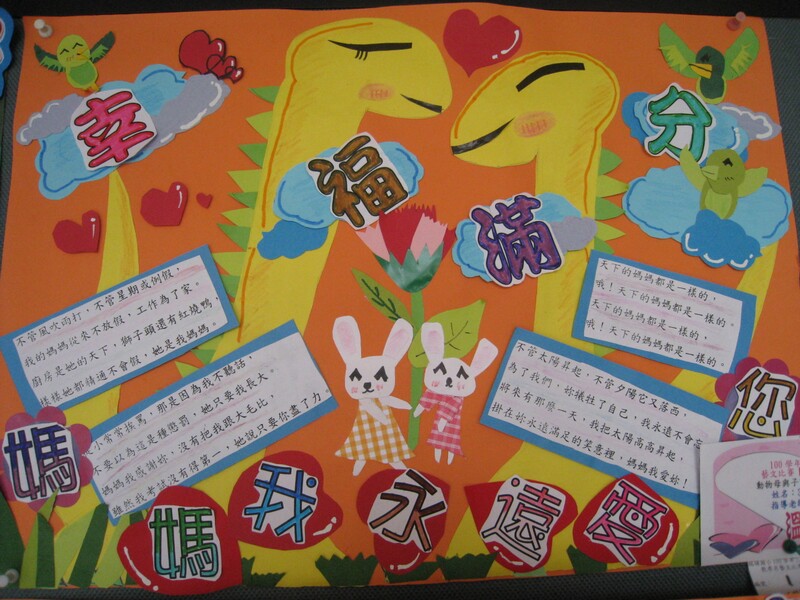 幸福滿分
不管風吹雨打，不管星期或例假，
我的媽媽從來不放假，工作為了家。
廚房是她的天下，獅子頭還有紅燒鴨，
樣樣她都精通不會假，她是我媽媽。
小常常挨罵，那是因為我不聽話，
不要以為這是種懲罰，她只要我長大。
媽媽我感謝妳，沒有把我跟大毛比，
雖然我考試沒有得第一，她說只要你盡了力。
天下的媽媽都是一樣的，
哦！天下的媽媽都是一樣的。
天下的媽媽都是一樣的，
哦！天下的媽媽都是一樣的。
不管太陽昇起，不管夕陽它又落西，
為了我們，妳犧牲了自己，我永遠不會忘
將來有那麼一天，我把太陽高高昇起，
掛在妳永遠滿足的笑意裡，媽媽我愛妳！
媽媽我永遠愛您
100學年
藝文比賽
動物母與子
姓名：
指導老師